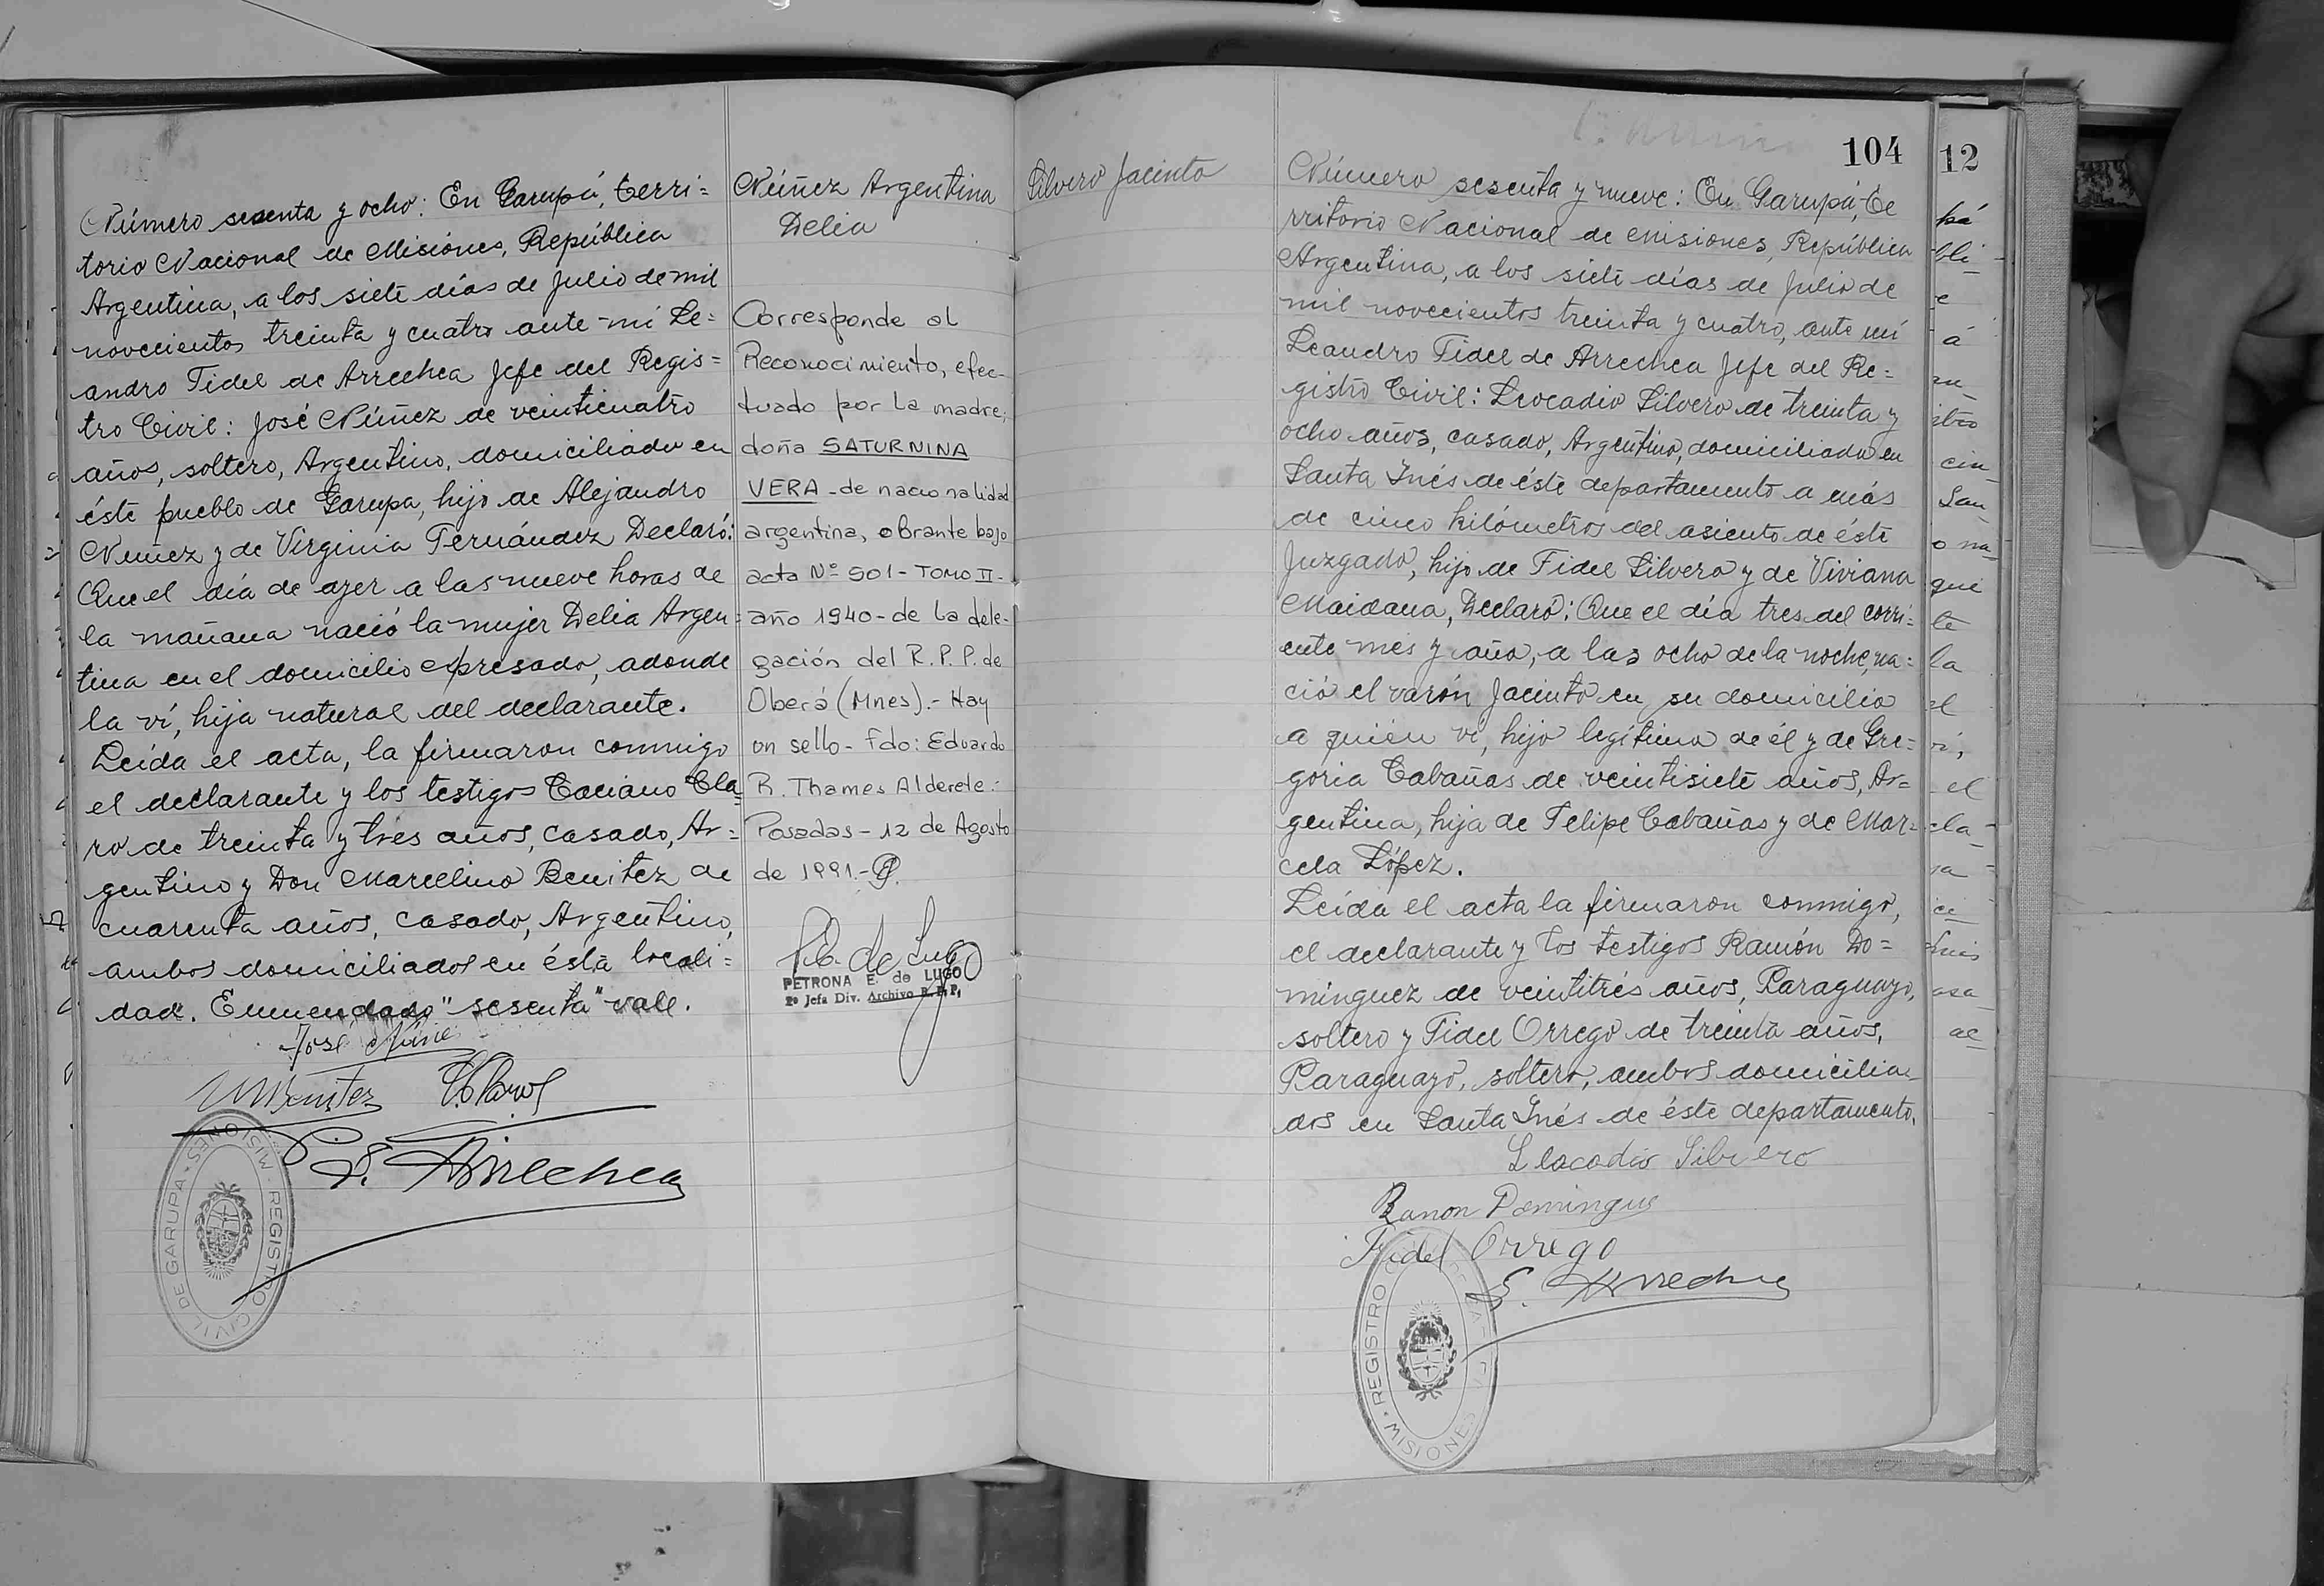 Número sesenta y ocho: En Garupá, Terri=
torio Nacional de Misiones, República
Argentina, a los siete días de Julio de mil
novecientos treinta y cuatro ante mí Le=
andro Fidel de Arrechea Jefe del Regis=
tro Civil: José Núñez de veinticuatro
años, soltero, Argentino, domiciliado en
éste pueblo de Garupa, hijo de Alejandro
Nuñez y de Virginia Fernández Declaró:
Que el día de ayer a las nueve horas de
la mañana nació la mujer Delia Argen=
tina en el domicilio expresado, adonde
la ví, hija natural del declarante.
Leída el acta, la firmaron conmigo
el declarante y los testigos Caciano Cla=
ro de treinta y tres años, casado, Ar=
gentino y Don Marcelino Benitez de
cuarenta años, casado, Argentino,
ambos domiciliados en ésta locali=
dad. Enmendado "sesenta" vale.
José Núñe
MBenitez C.Claro
L. F. Arrechea
REGISTRO CIVIL DE GARUPA • MISIONES •
Núñez Argentina
Delia
Corresponde al
Reconocimiento, efec-
tuado por la madre,
doña SATURNINA
VERA - de nacionalidad
argentina, obrante bajo
acta Nº 501 - TOMO II -
año 1940 - de la dele-
gación del R. P. P. de
Oberá (Mnes).- Hay
un sello - Fdo: Eduardo
R. Thames Alderete.-
Posadas - 12 de Agosto
de 1991.-
P.E. de Lugo
PETRONA E. de LUGO
2º Jefa Div. Archivo R.P.P.
Silvero Jacinto
104
Número sesenta y nueve: En Garupá, Te
rritorio Nacional de Misiones, República
Argentina, a los siete días de Julio de
mil novecientos treinta y cuatro, ante mí
Leandro Fidel de Arrechea Jefe del Re=
gistro Civil: Leocadio Silvero de treinta y
ocho años, casado, Argentino, domiciliado en
Santa Inés de éste departamento a más
de cinco kilómetros del asiento de éste
Juzgado, hijo de Fidel Silvero y de Viviana
Maidana, Declaró: Que el día tres del corri=
ente mes y año, a las ocho de la noche, na=
ció el varón Jacinto en su domicilio
a quién ví, hijo legítimo de él y de Gre=
goria Cabañas de veintisiete años, Ar=
gentina, hija de Felipe Cabañas y de Mar=
cela López.
Leída el acta la firmaron conmigo,
el declarante y los testigos Ramón Do=
minguez de veintitrés años, Paraguayo,
soltero y Fidel Orrego de treinta años,
Paraguayo, soltero, ambos domicilia=
dos en Santa Inés de éste departamento.
Leocadio Silvero
Ramon Domingue
Fidel Orrego
L. Arrechea
REGISTRO MISIONES
12
pá
bli-
e
á
stro
cin
San
o na
que
te
la
el
ví,
el
cla-
ci
asa
de